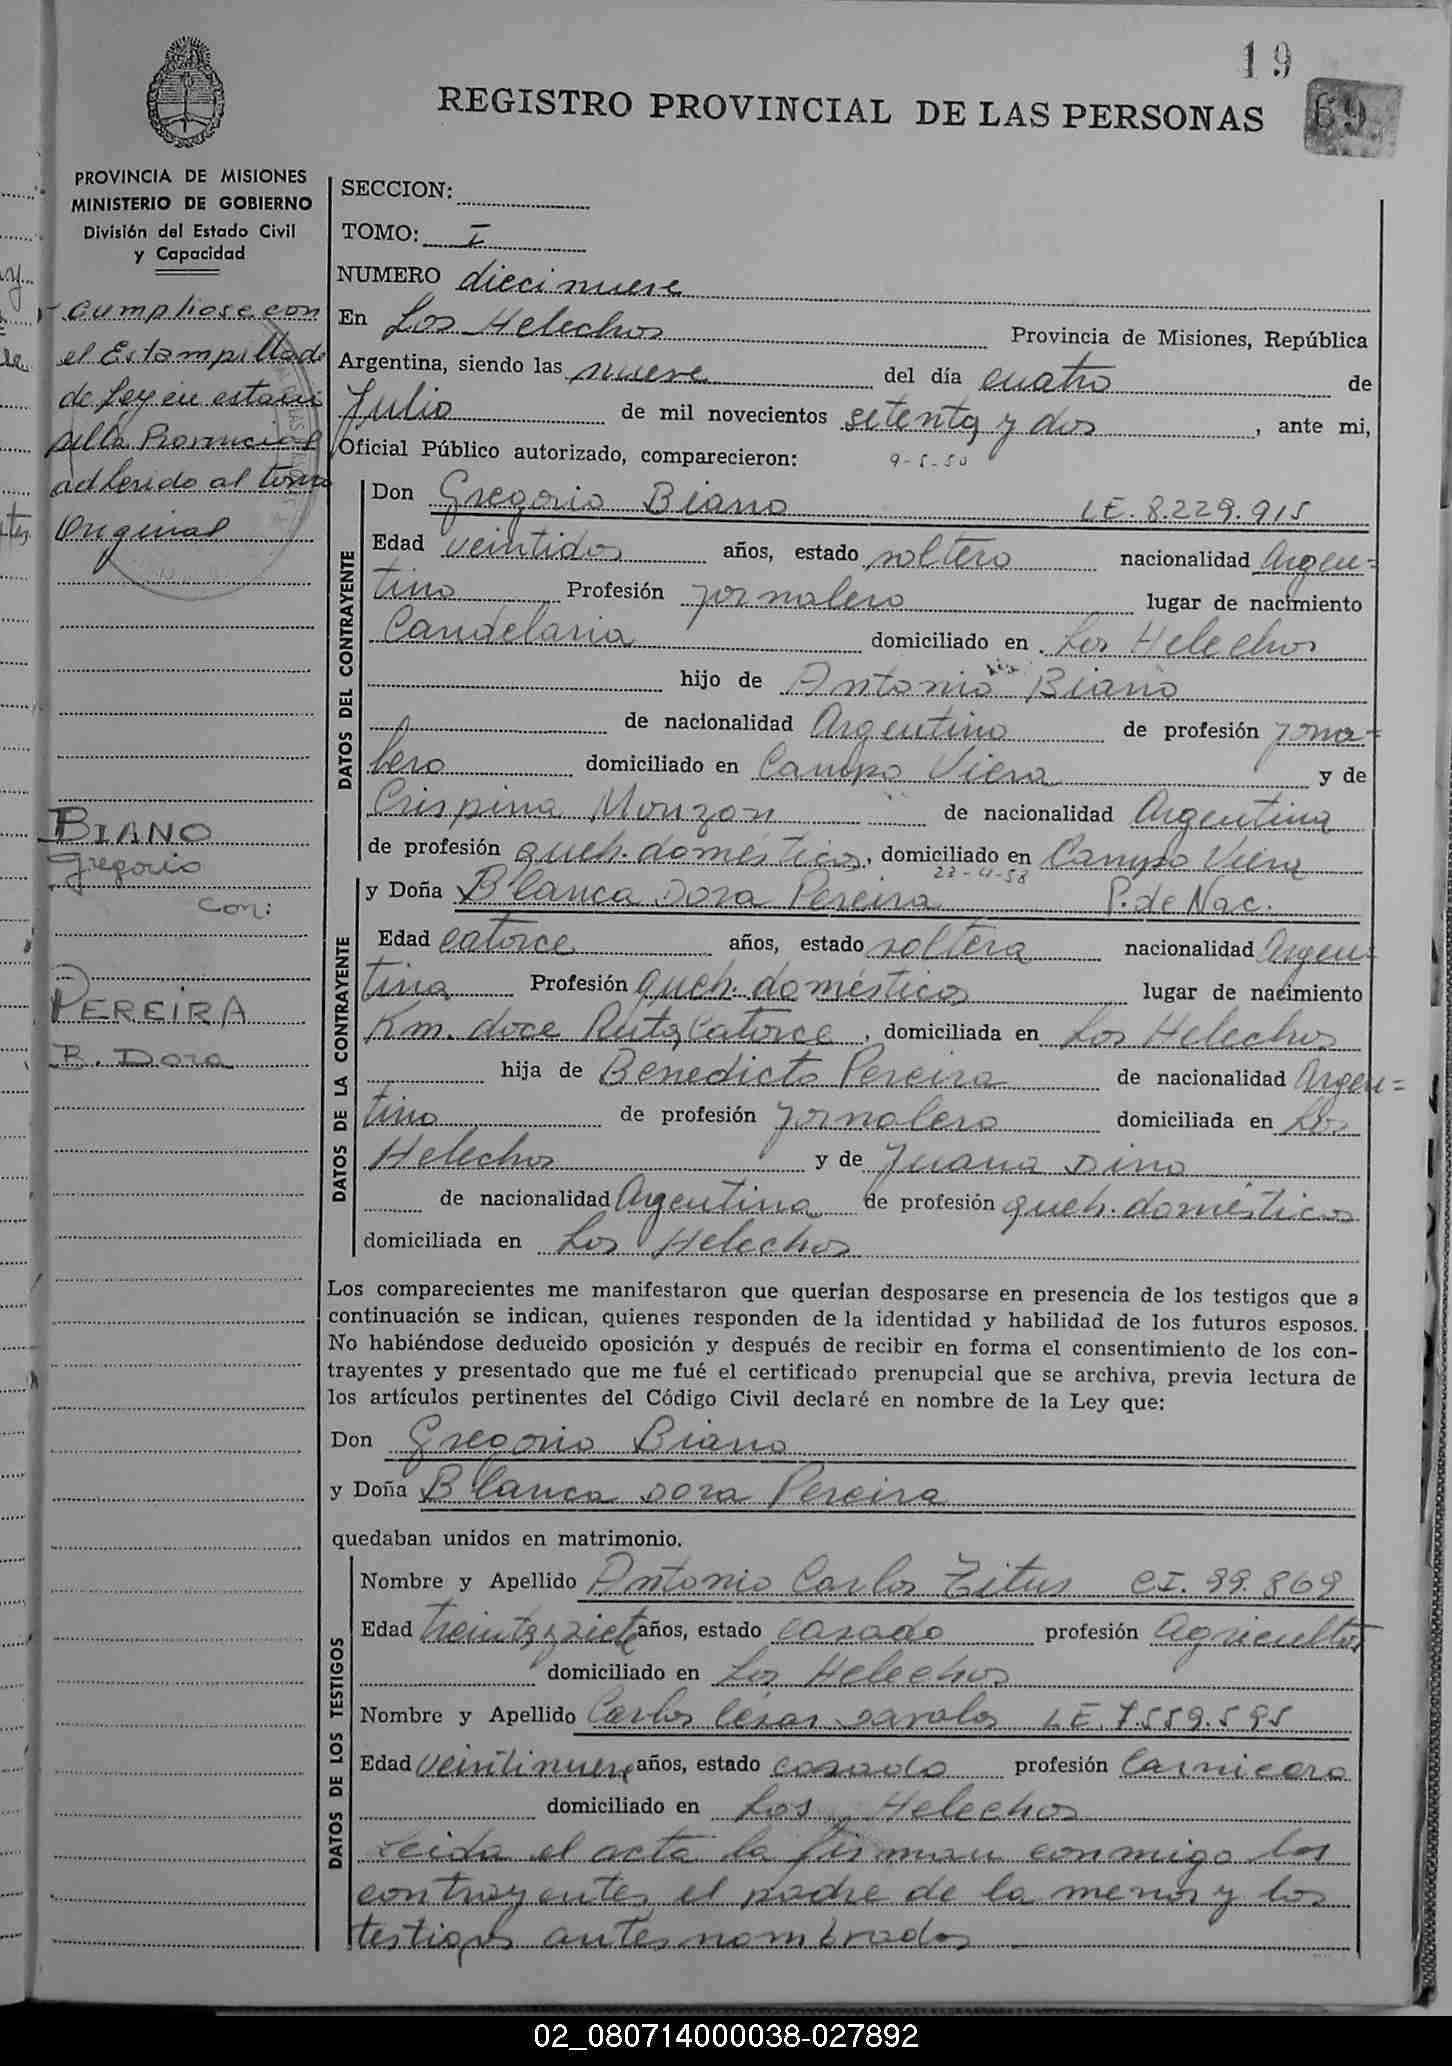 19
REGISTRO PROVINCIAL DE LAS PERSONAS
69
PROVINCIA DE MISIONES
MINISTERIO DE GOBIERNO
División del Estado Civil
y Capacidad
Cumpliose con
el Estampillado
de Ley en estam
pilla Provincial
adherido al tomo
Original
BIANO
Gregorio
con:
PEREIRA
B. Dora
SECCION:
TOMO: I
NUMERO diecinueve
En Los Helechos Provincia de Misiones, República
Argentina, siendo las nueve del día cuatro de
Julio de mil novecientos setenta y dos, ante mi,
Oficial Público autorizado, comparecieron: 9-5-50
DATOS DEL CONTRAYENTE
Don Gregorio Biano LE. 8.229.915
Edad veintidos años, estado soltero nacionalidad Argen=
tino Profesión jornalero lugar de nacimiento
Candelaria domiciliado en Los Helechos
hijo de Antonio Biano
de nacionalidad Argentino de profesión jorna=
lero domiciliado en Campo Viera y de
Crispina Monzon de nacionalidad Argentina
de profesión queh. domésticos, domiciliado en Campo Viera
23-4-58
DATOS DE LA CONTRAYENTE
y Doña Blanca Dora Pereira P. de Nac.
Edad catorce años, estado soltera nacionalidad Argen=
tina Profesión queh. domésticos lugar de nacimiento
Km. doce Ruta Catorce, domiciliada en Los Helechos
hija de Benedicto Pereira de nacionalidad Argen=
tino de profesión jornalero domiciliada en Los
Helechos y de Juana Dino
de nacionalidad Argentina de profesión queh. domésticos
domiciliada en Los Helechos
Los comparecientes me manifestaron que querían desposarse en presencia de los testigos que a
continuación se indican, quienes responden de la identidad y habilidad de los futuros esposos.
No habiéndose deducido oposición y después de recibir en forma el consentimiento de los con-
trayentes y presentado que me fué el certificado prenupcial que se archiva, previa lectura de
los artículos pertinentes del Código Civil declaré en nombre de la Ley que:
Don Gregorio Biano
y Doña Blanca Dora Pereira
quedaban unidos en matrimonio.
DATOS DE LOS TESTIGOS
Nombre y Apellido Antonio Carlos Titus CI. 99.869
Edad treinta y siete años, estado casado profesión Agricultor
domiciliado en Los Helechos
Nombre y Apellido Carlos César Davalos LE. 7.559.595
Edad veintinueve años, estado casado profesión Carnicero
domiciliado en Los Helechos
Leida el acta la firman conmigo los
contrayentes, el padre de la menor y los
testigos antes nombrados
02_080714000038-027892